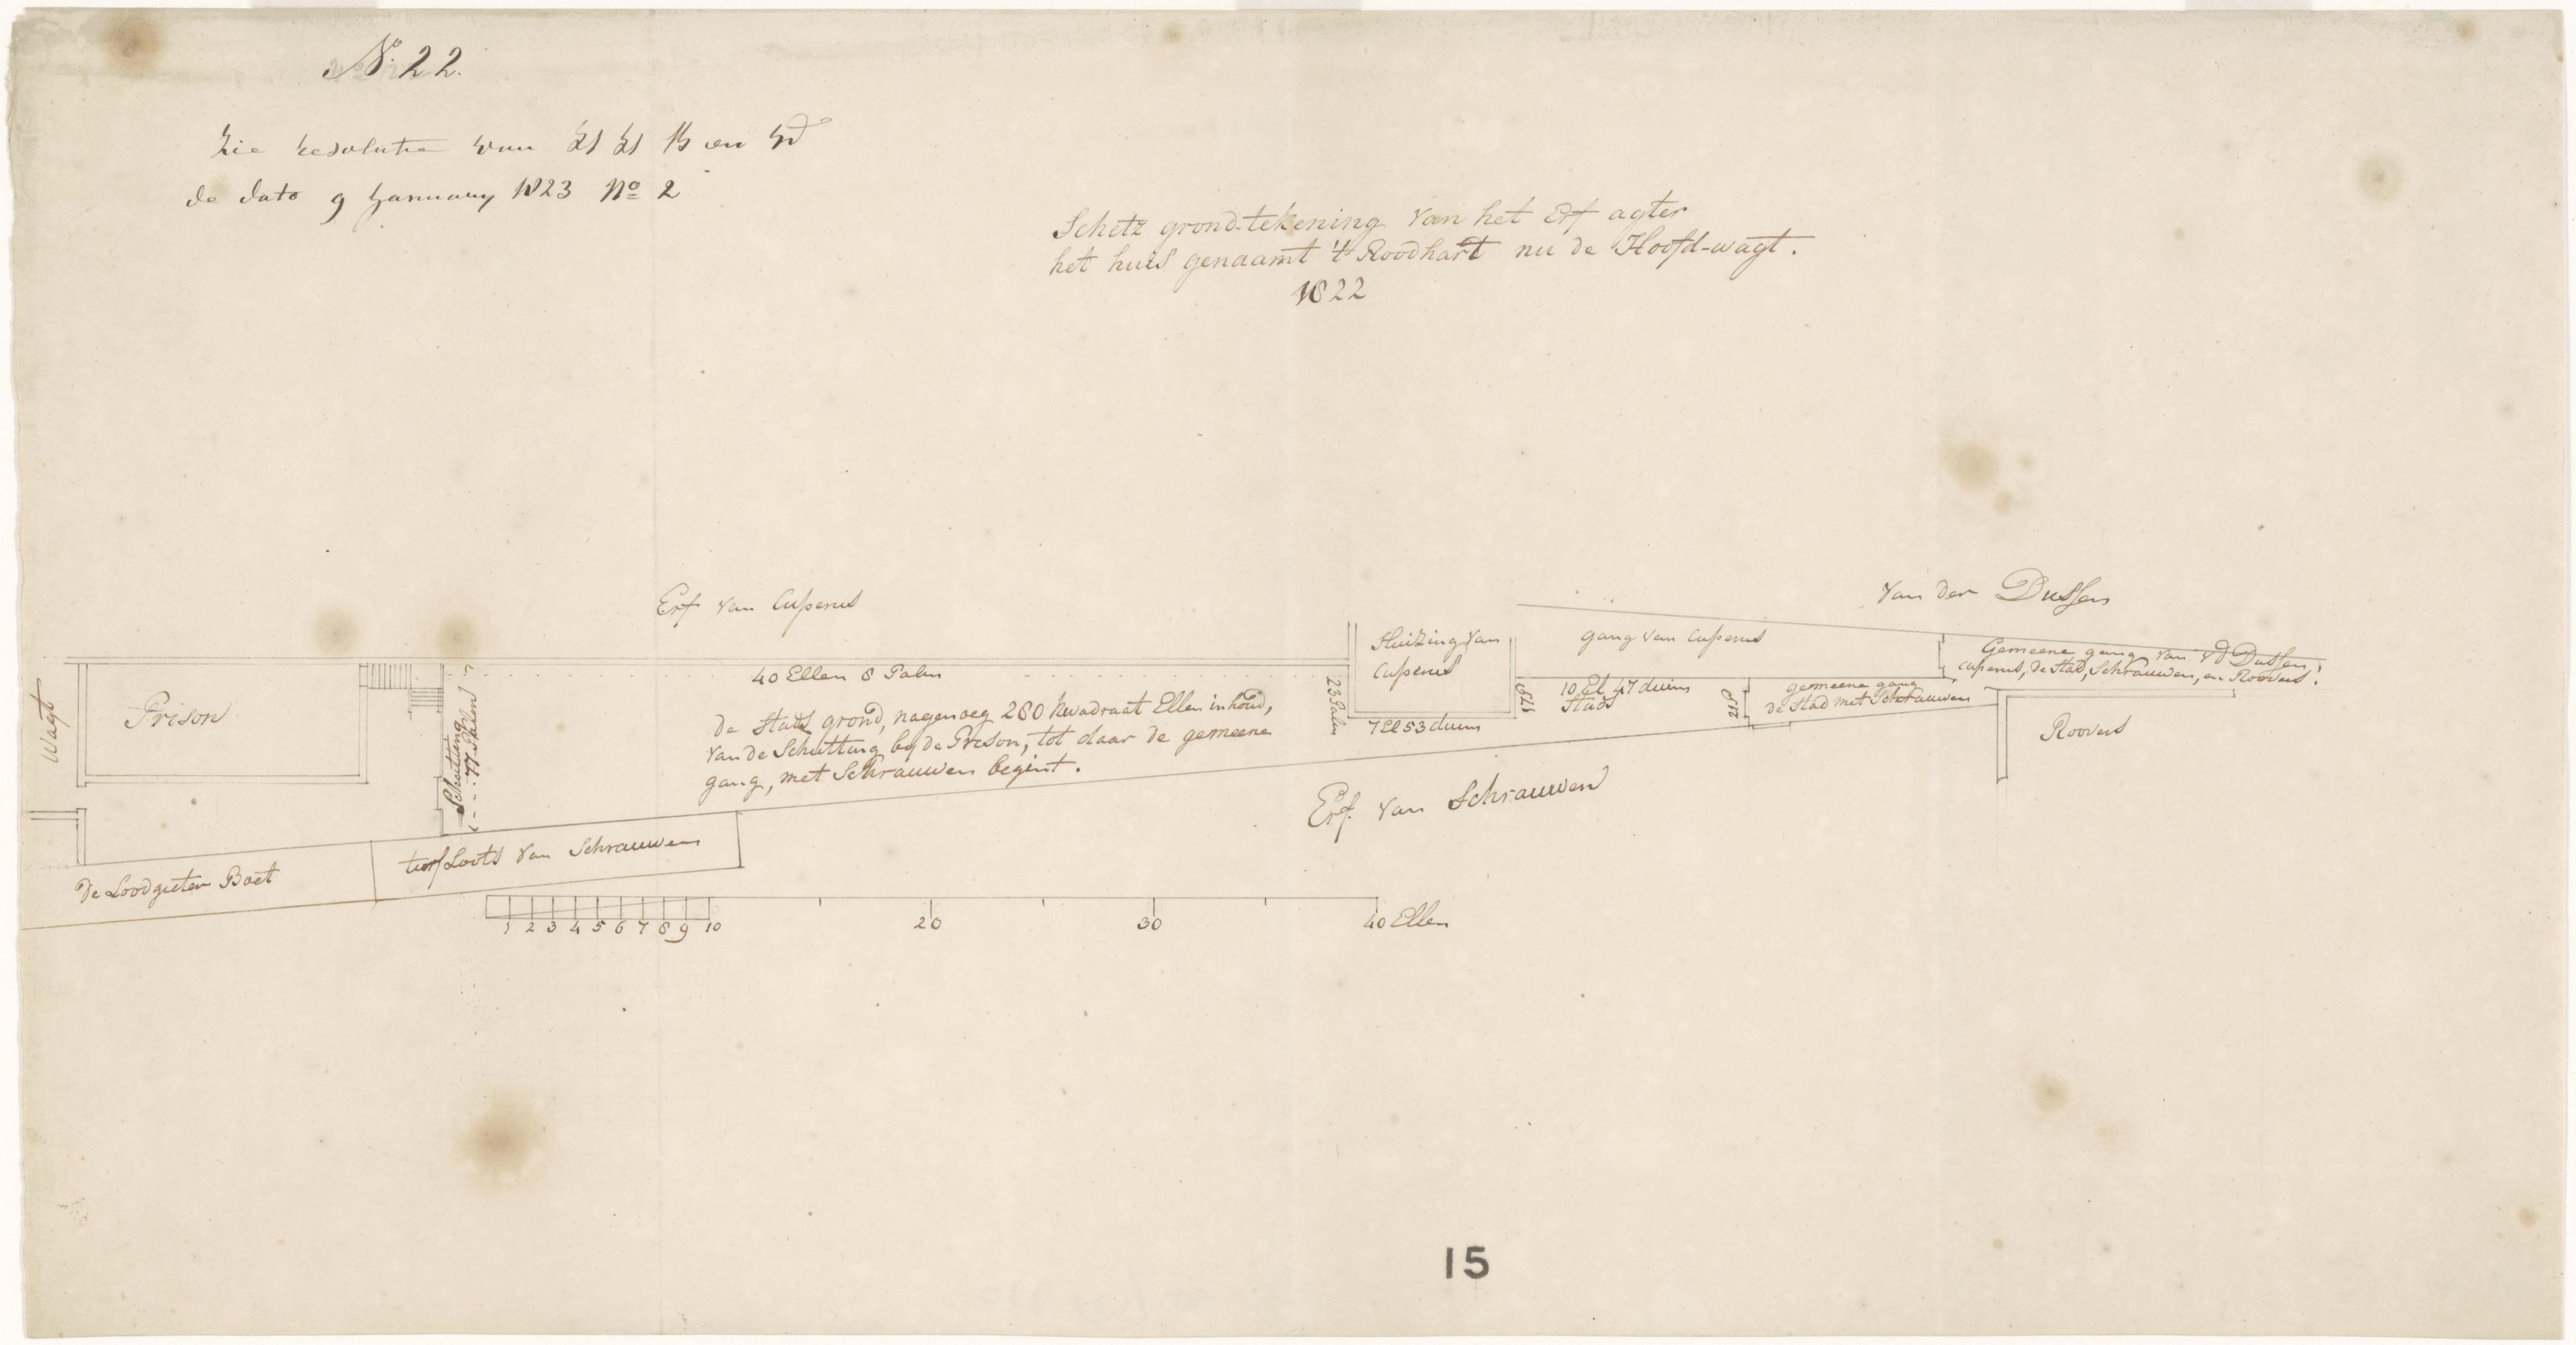 No. 22.
Zie Resolutie van
de dato 9 January 1823 No 2
Schetz grond-tekening van het Erf agter
het huis genaamt 't Roodhart nu de Hoofd-wagt.
1822
Erf van Cuperus
van der Dussen
Huizing van
Cuperus
gang van Cuperus
Gemeene gang van vd Dussen,
Cuperus, de Stad, Schrauwen, en Roovers.
40 Ellen 8 Palm
Wagt
Prison
Schutting
77 Palm
De Stads grond, nagenoeg 280 kwadraat Ellen inhoud,
van de Schutting by de Prison, tot daar de gemeene
gang, met Schrauwen begint.
23 Palm
7 El 53 duim
10 El 47 duim
Stads
gemeene gang
de Stad met Schrauwen
Roovers
Erf van Schrauwen
turf Loots van Schrauwen
De Loodgieter Baet
1 2 3 4 5 6 7 8 9 10 20 30 40 Ellen
15